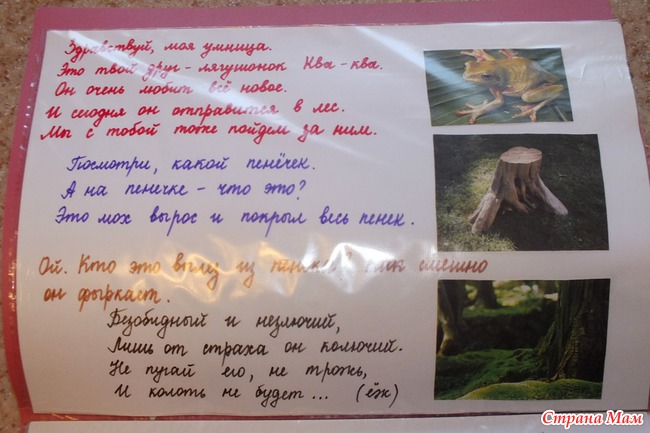 Здравствуй, моя умница.
Это твой друг - лягушонок Ква-ква.
Он очень любит всё новое.
И сегодня он отправится в лес.
Мы с тобой тоже пойдем за ним.
Посмотри, какой пенёчек.
А на пенечке - что это?
Это мох вырос и покрыл весь пенек.
Ой. Кто это из смешно
он фыркает.
Безобидный и незлючий,
Лишь от страха он колючий.
Не пугай его, не трожь,
И колоть не будет ... (ёж)
Страна Мам